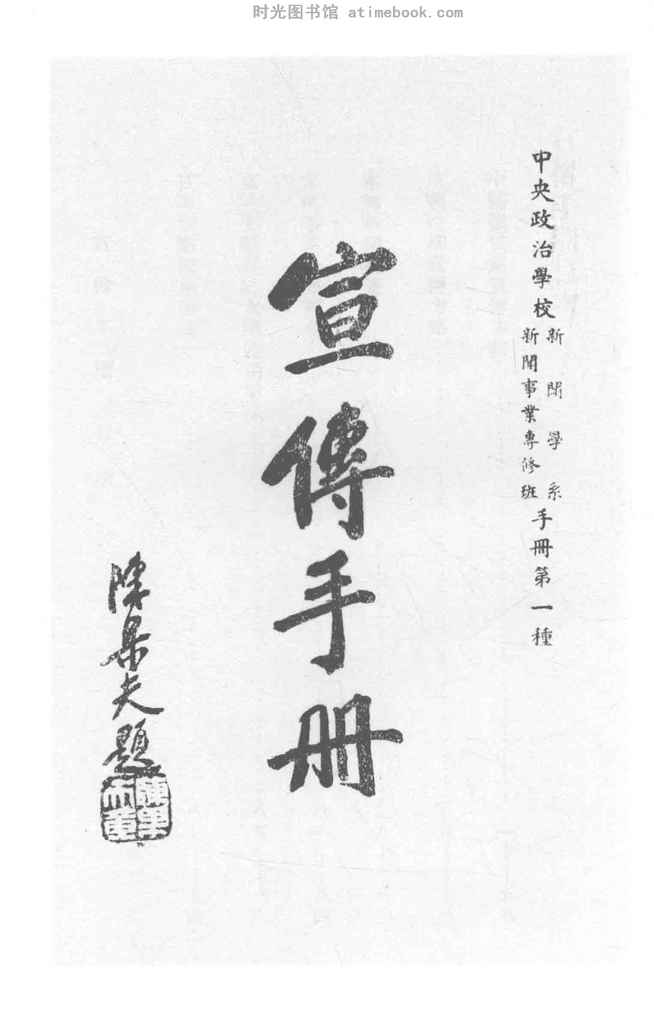 时光图书馆 atimebook.com
中央政治學校
新聞學系
新聞事業專修班
手冊第一種
宣傳手冊
陳果夫題